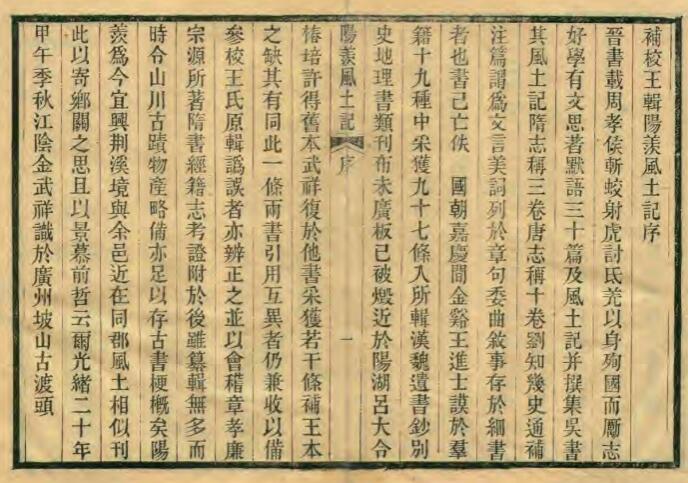 補校王輯陽羨風土記序
晉書載周孝侯斬蛟射虎討氐羌以身殉國而厲志
好學有文思著默語三十篇及風土記并撰集吳書
其風土記隋志稱三卷唐志稱十卷劉知幾史通補
注篇謂為文言美詞列於章句委曲敘事存於細書
者也書已亡佚　國朝嘉慶間金谿王進士謨於羣
籍十九種中采獲九十七條入所輯漢魏遺書鈔別
史地理書類刊布未廣板已被燬近於陽湖呂大令
陽羨風土記　序　一
椿培許得舊本武祥復於他書采獲若干條補王本
之缺其有同此一條兩書引用互異者仍兼收以備
參校王氏原輯譌誤者亦辨正之並以會稽章孝廉
宗源所著隋書經籍志考證附於後雖纂輯無多而
時令山川古蹟物產略備亦足以存古書梗概矣陽
羨為今宜興荆溪境與余邑近在同郡風土相似刊
此以寄鄉關之思且以景慕前哲云爾光緒二十年
甲午季秋江陰金武祥識於廣州坡山古渡頭